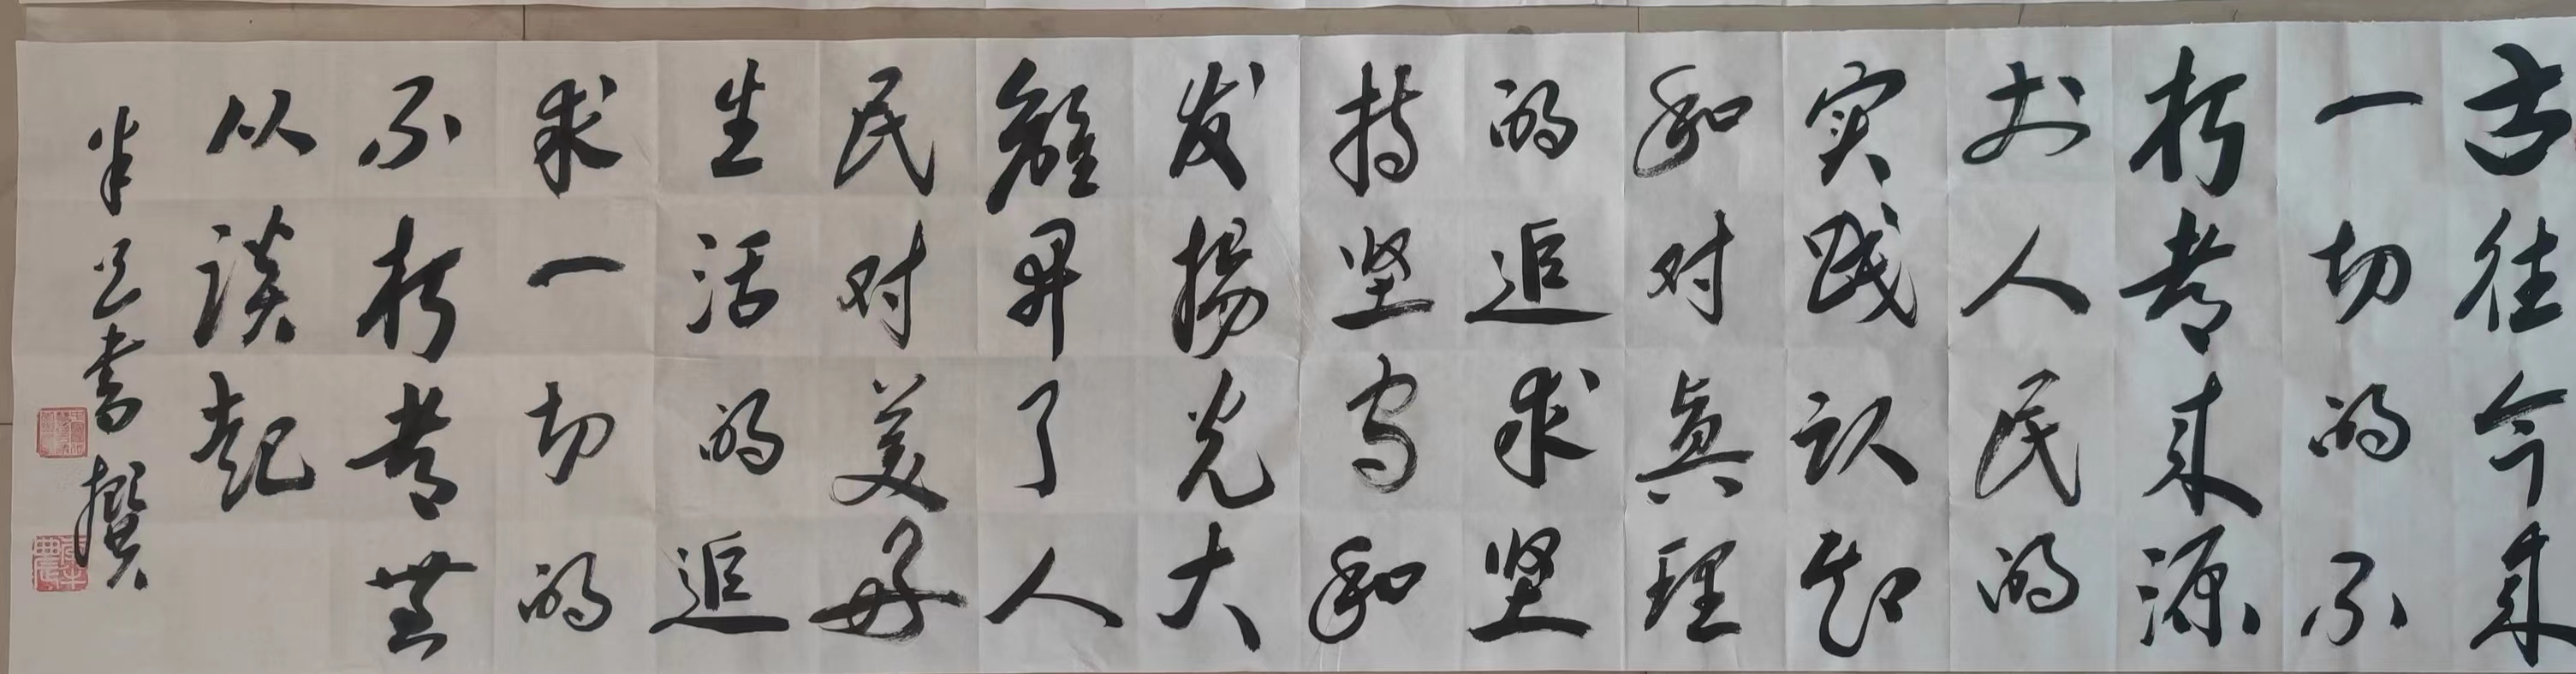 古往今来
一切的不
朽都来源
於人民的
实践认知
和对真理
的追求坚
持坚守和
发揚光大
離開了人
民对美好
生活的追
求一切的
不朽都無
从談起
半书撰